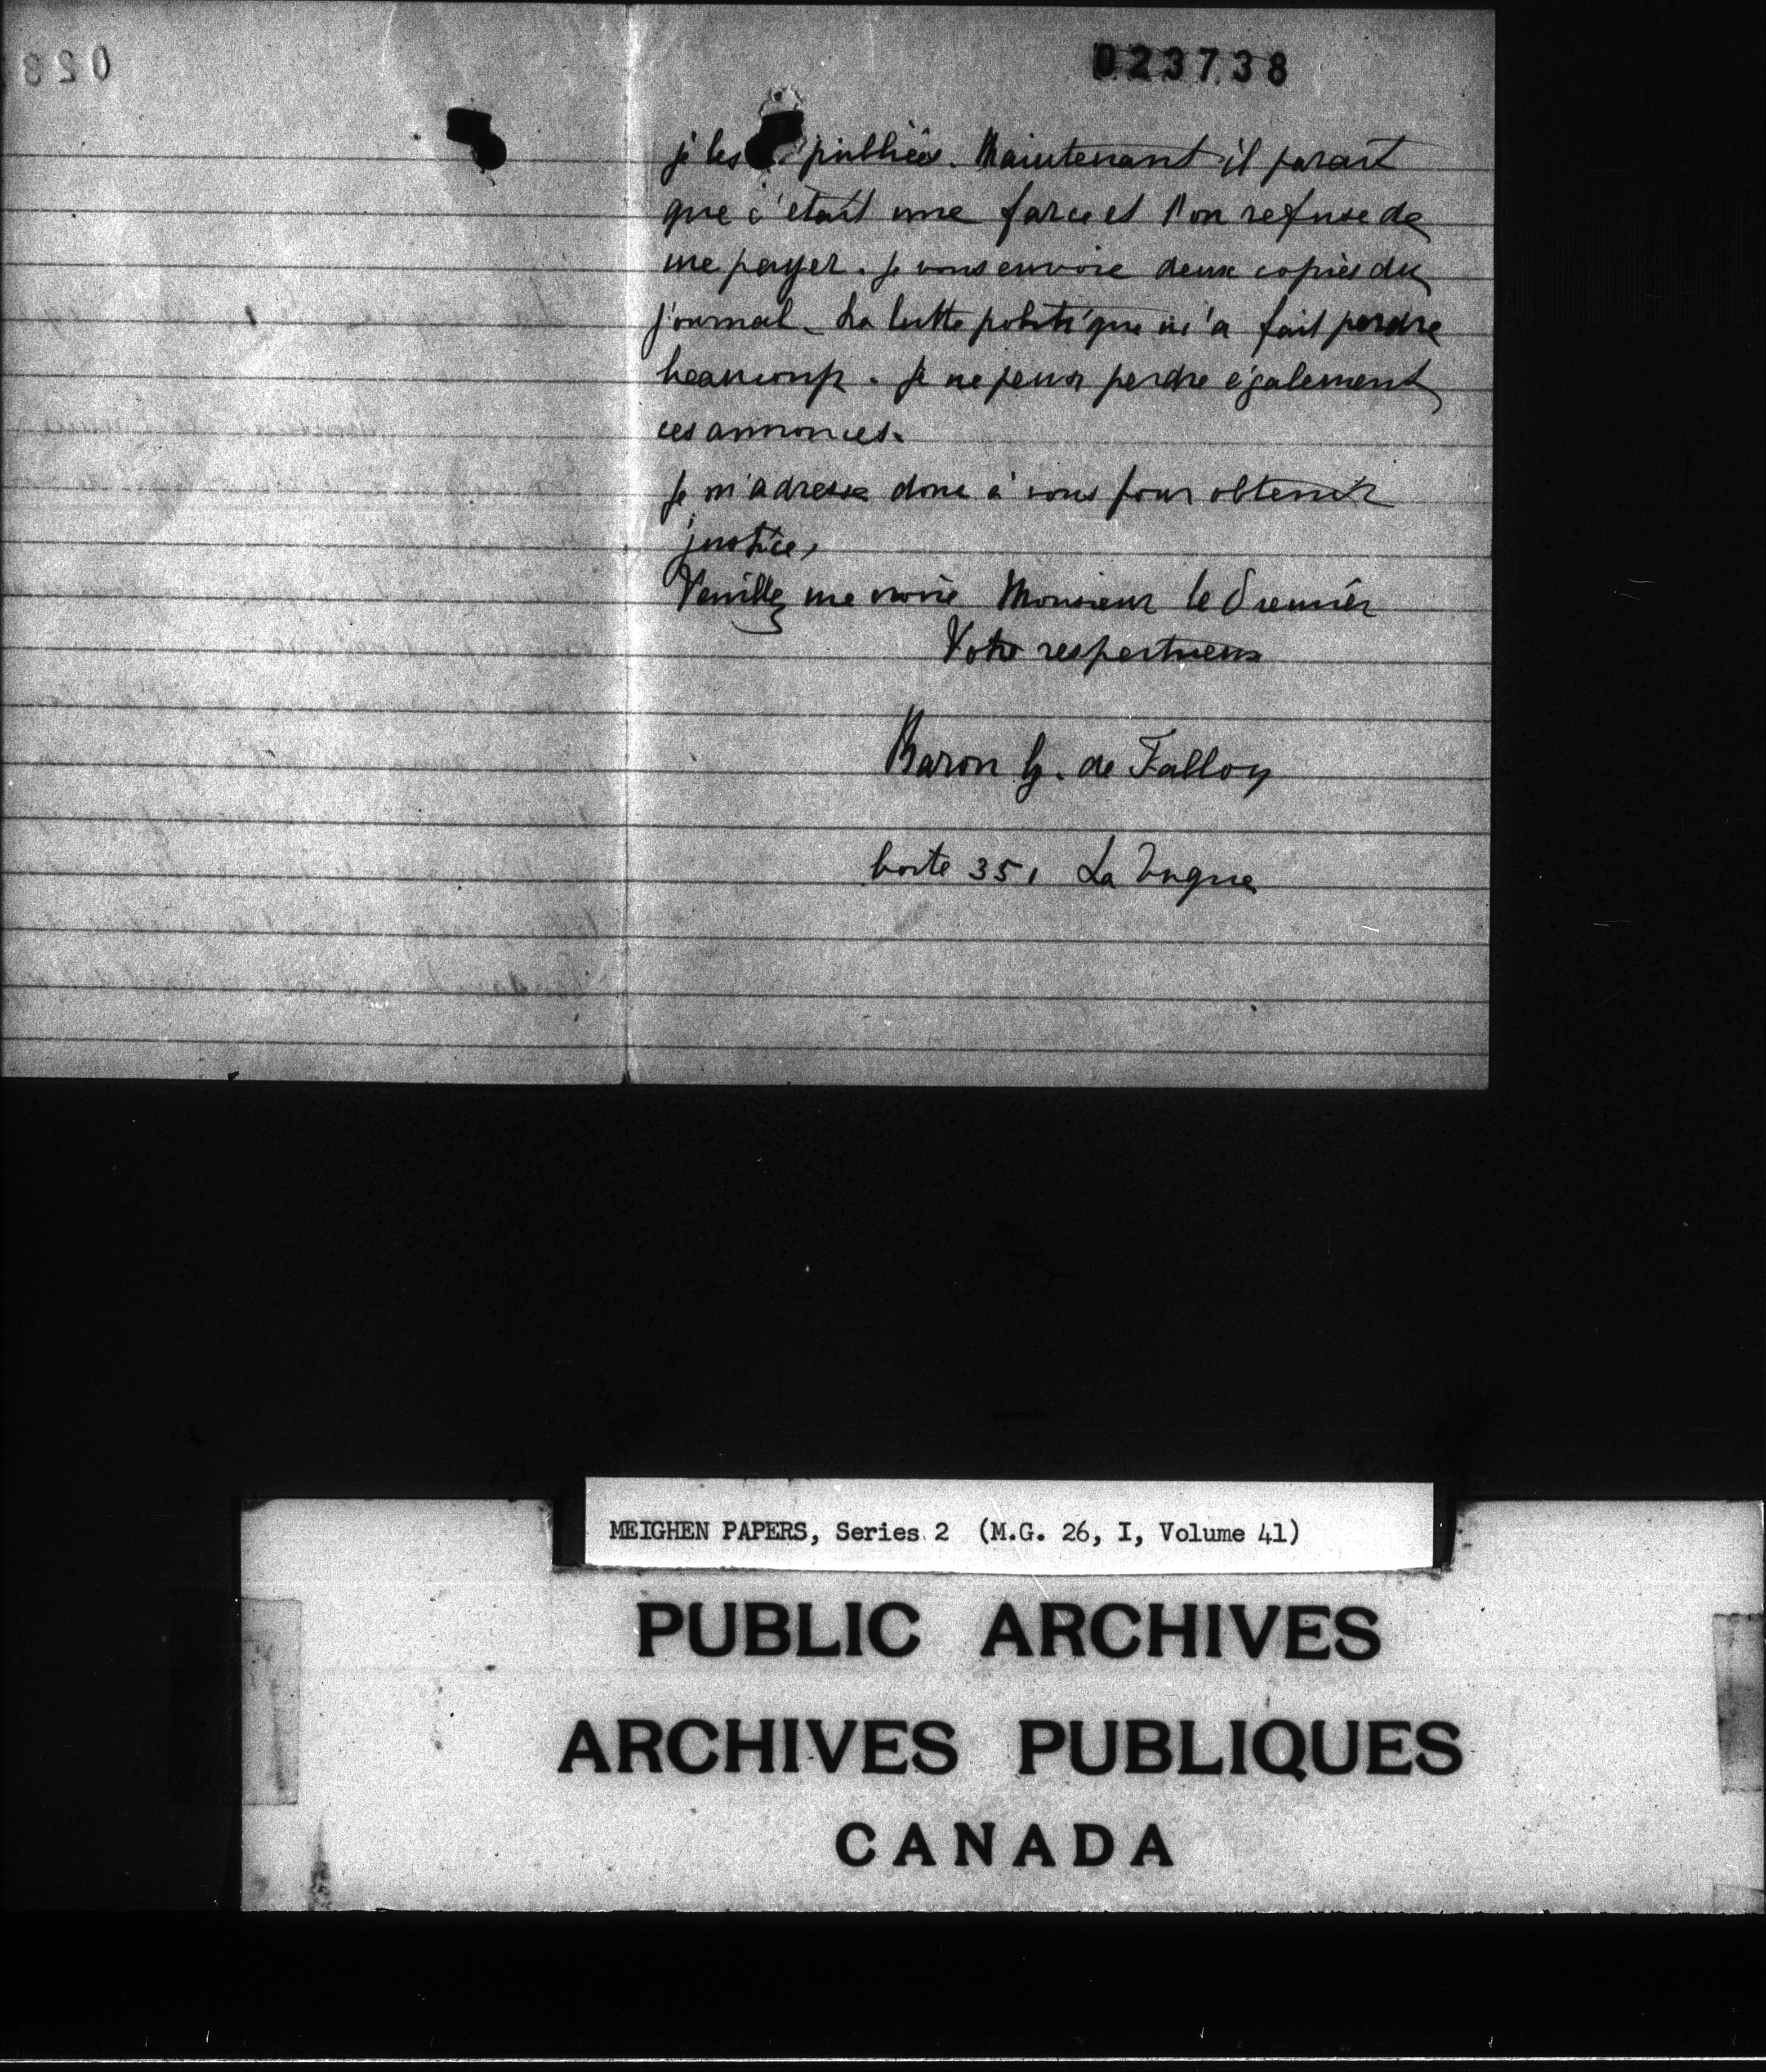 023738
je les publiées. Maintenant il parait
que c'était une farce et l'on refuse de
me payer. Je vous envoie deux copies du
journal. La lutte politique m'a fait perdre
beaucoup. Je ne peux perdre également
ces annonces.
Je m'adresse donc à vous pour obtenir
justice,
Veuillez me croire Monsieur le Premier
Votre respectueux
Baron G. de Falloy
boite 351 La Tuque
MEIGHEN PAPERS, Series 2 (M.G. 26, I, Volume 41)
PUBLIC ARCHIVES
ARCHIVES PUBLIQUES
CANADA